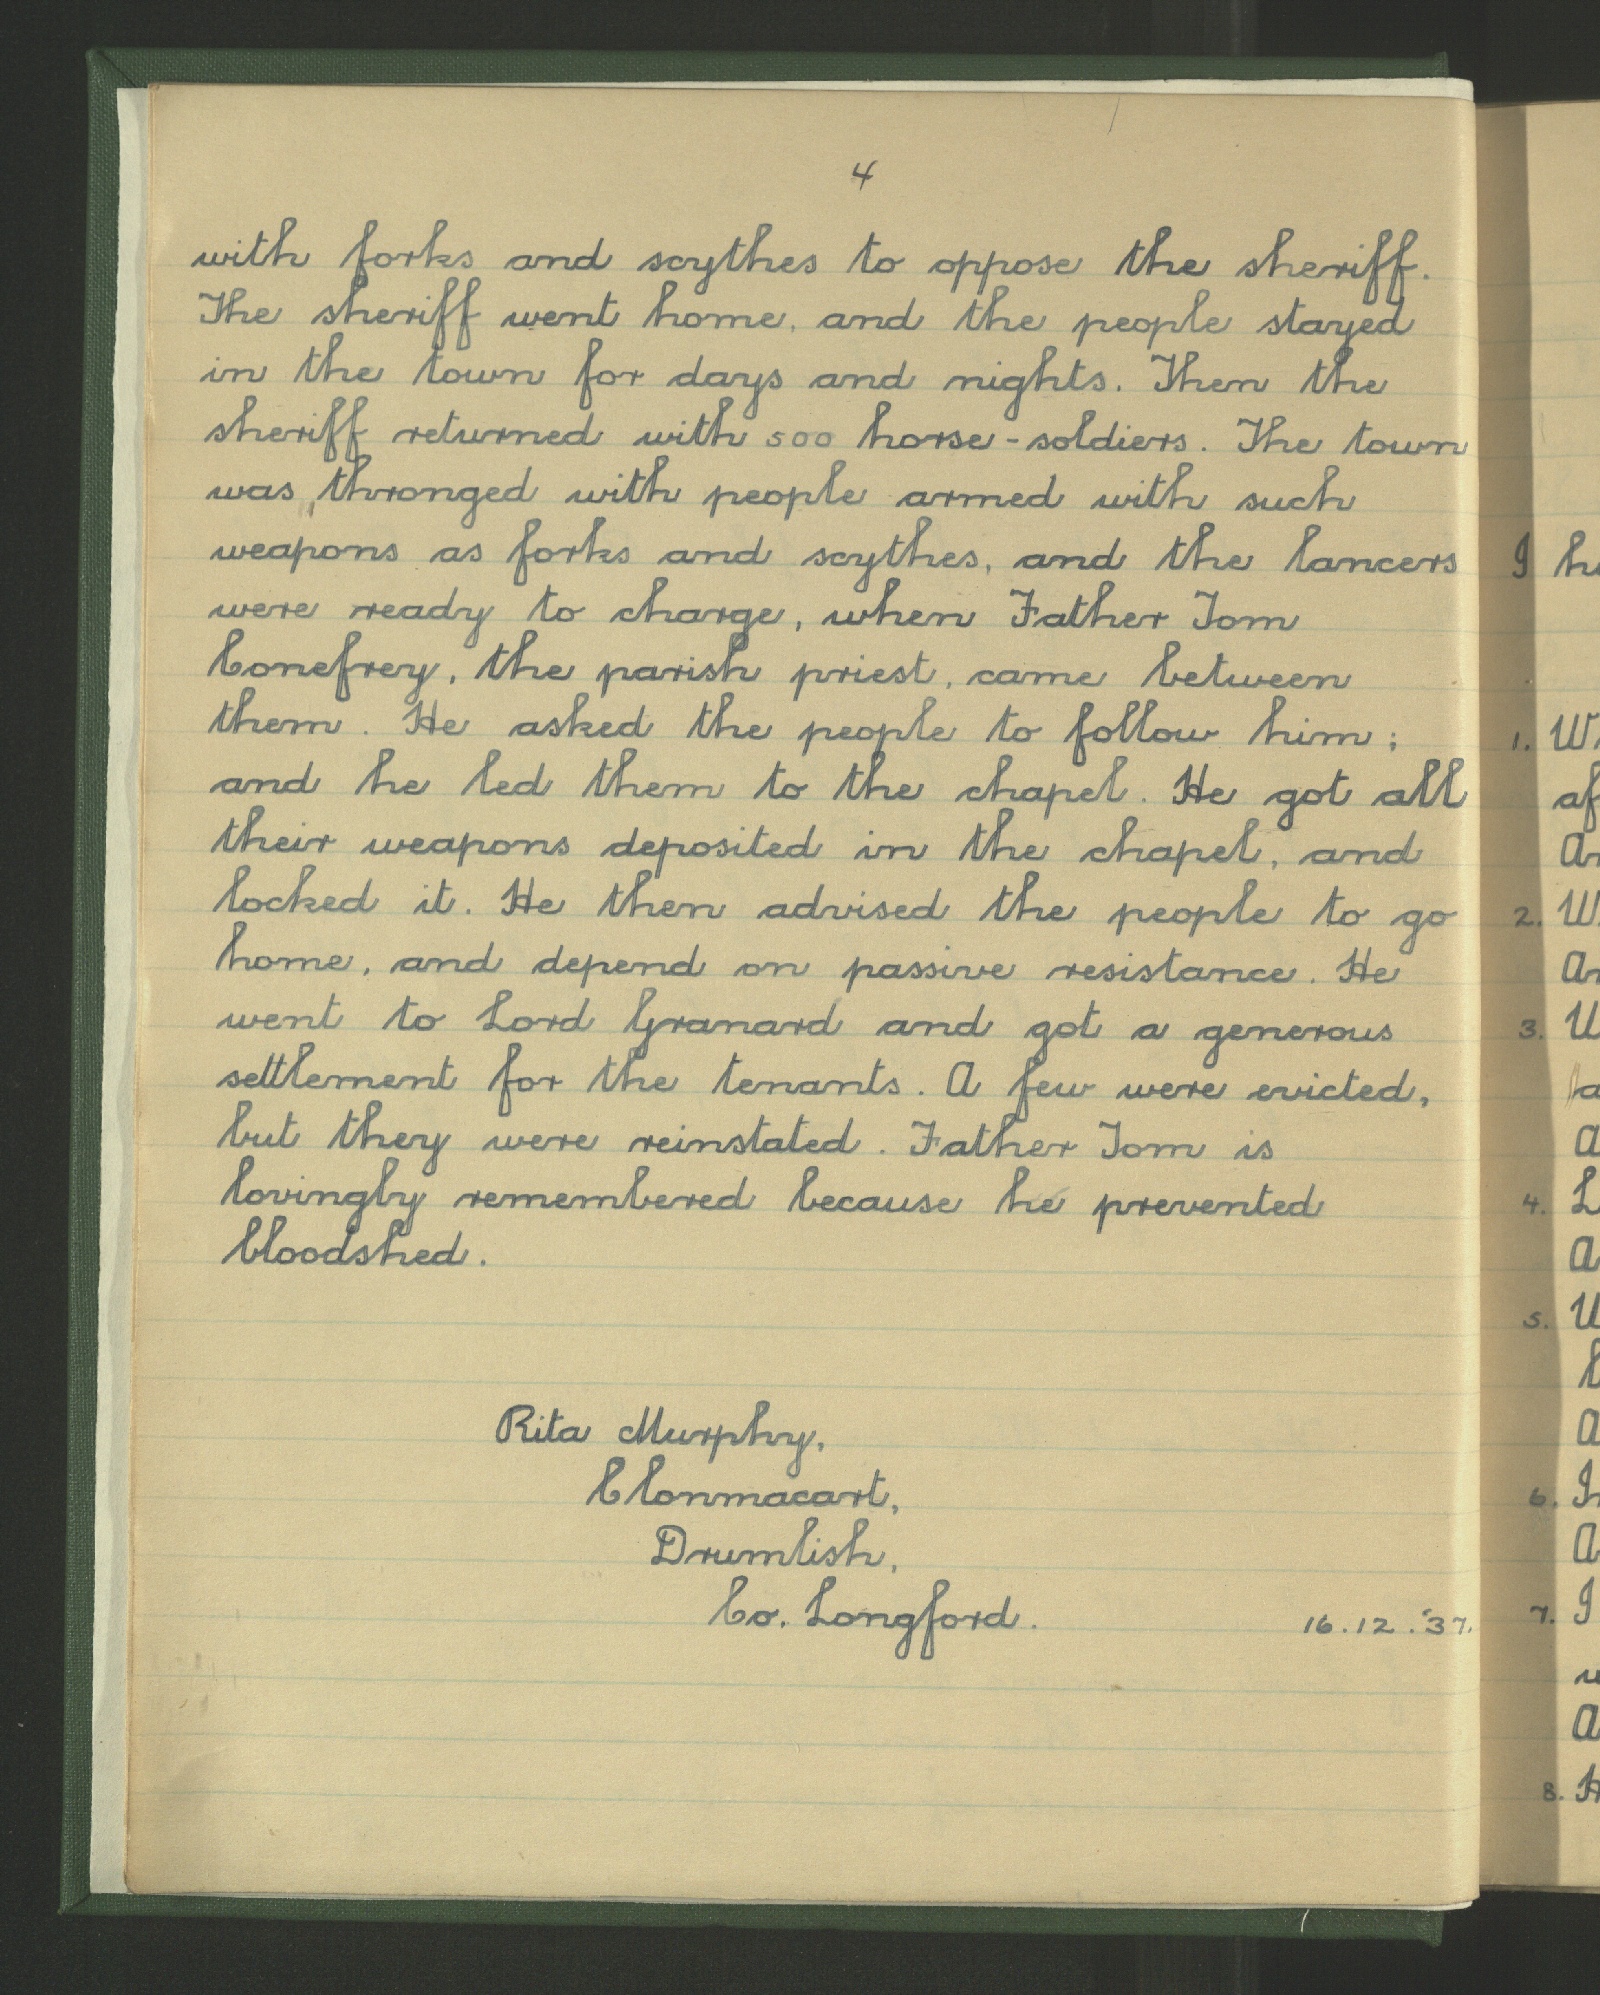 4
with forks and scythes to oppose the sheriff.
The sheriff went home, and the people stayed
in the town for days and nights. Then the
sheriff returned with 500 horse-soldiers. The town
was thronged with people armed with such
weapons as forks and scythes, and the lancers
were ready to charge, when Father Tom
Conefrey, the parish priest, came between
them. He asked the people to follow him;
and he led them to the chapel. He got all
their weapons deposited in the chapel, and
locked it. He then advised the people to go
home, and depend on passive resistance. He
went to Lord Granard and got a generous
settlement for the tenants. A few were evicted,
but they were reinstated. Father Tom is
lovingly remembered because he prevented
bloodshed.
Rita Murphy,
Clonmacart,
Drumlish,
Co. Longford. 16.12.'37.
I
1.
2.
3.
4.
5.
6.
7. I
8.